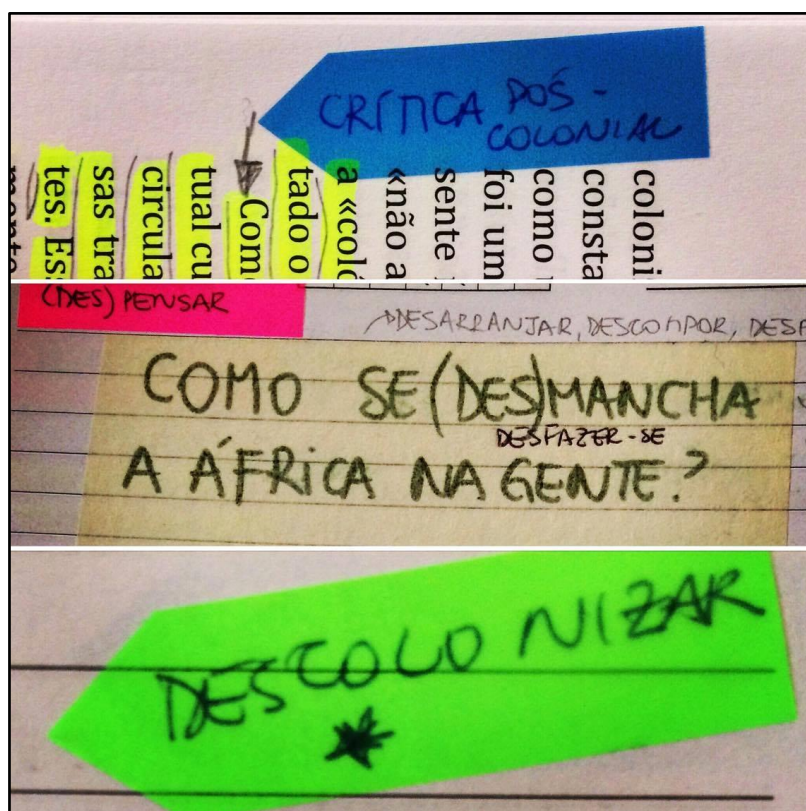 CRÍTICA PÓS-
COLONIAL
coloni
consta
como
foi um
sente
«não a
a «coló
tado o
Como
tual cu
circula
sas tra
tes. Es
(DES) PENSAR
DESARRANJAR, DESCOMPOR, DESF
COMO SE(DES)MANCHA
DESFAZER-SE
A ÁFRICA NA GENTE?
DESCOLONIZAR